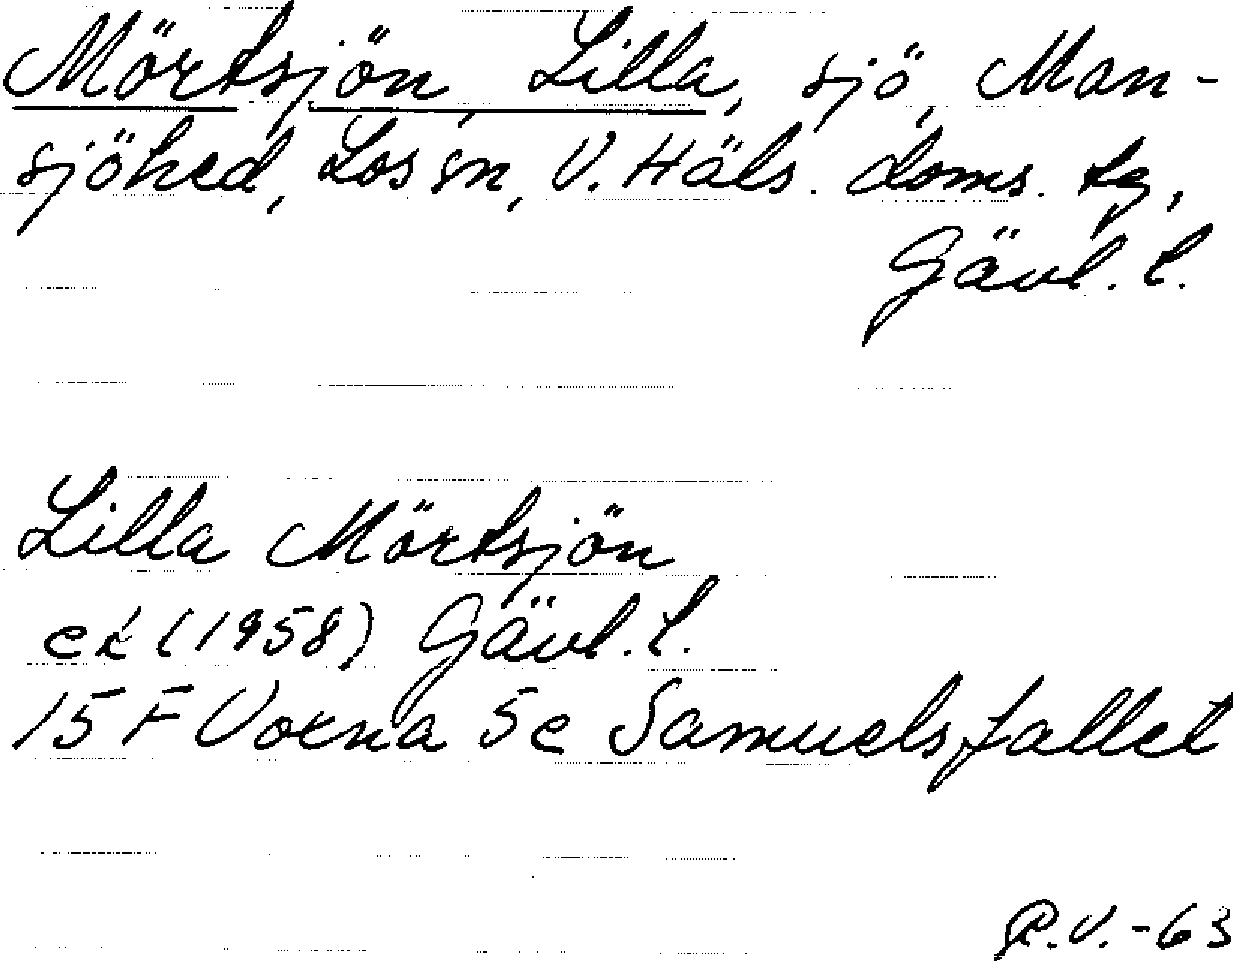 Mörtsjön, Lilla, sjö, Man-
sjöhed, Los sn, V. Häls. doms. tg,
Gävl. l.
Lilla Mörtsjön
ek (1958) Gävl. l.
15 F Voxna 5e Samuelsfallet
R.V.-63